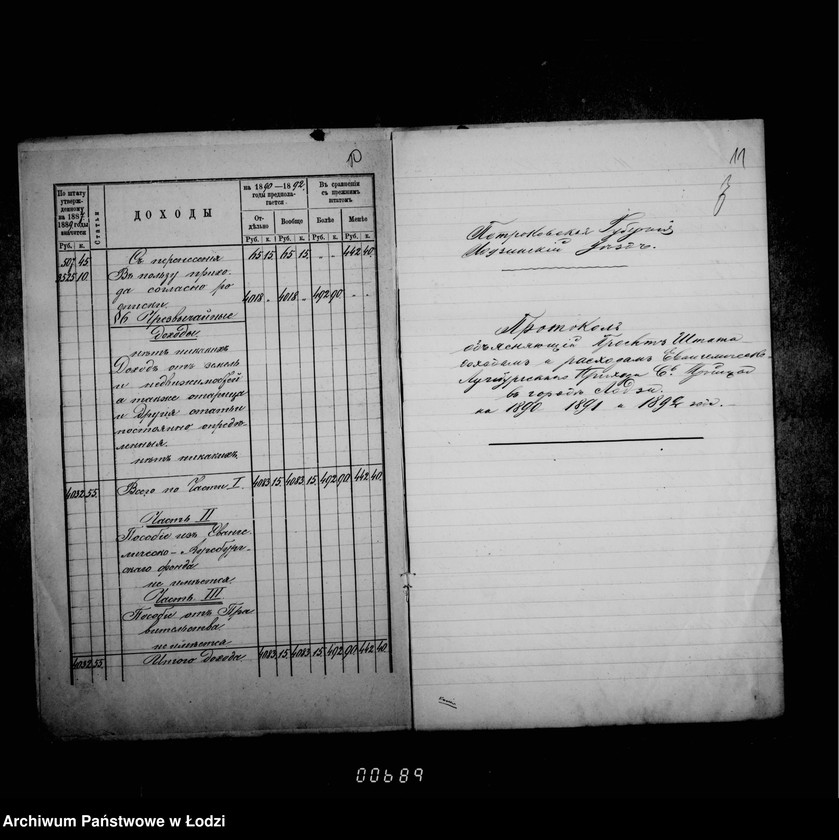 10
По штату утверж-
денному
на 1887
1889 годы
значится
Руб. к.
Статьи
ДОХОДЫ
на 1890 — 1892
годы предпола-
гается
От-
дѣльно
Вообще
Въ сравненіи
съ прежнимъ
штатомъ
Болѣе
Менѣе
Руб. к. Руб. к. Руб. к. Руб. к.
507 45 Съ 65 15 65 15 „ „ 442 40
3525 10 Въ пользу прихо-
да согласно ро
списки 4018 „ 4018 „ 492 90 „ „
§6 Чрезвычайные
Доходы
нѣтъ никакихъ
Доходъ отъ земель
и недвижимостей
а также
и другія статьи
постоянно опредѣ-
ленныя.
нѣтъ никакихъ
4032 55 Всего по Части I. 4083 15 4083 15 492 90 442 40
Часть II
Пособіе изъ Еванге-
лическо-Аугсбург-
скаго фонда
не имѣется
Часть III
Пособіе отъ Пра
вительства
не имѣется
4032 55 Итого дохода 4083 15 4083 15 492 90 442 40
11
Петроковская Губернія
Лодзинскій Уѣздъ.
Протоколъ
объясняющій Проектъ Штата
доходамъ и расходамъ Евангелическо-
Аугсбургскаго Прихода Св. Троицы
въ городѣ Лодзи.
на 1890 1891 и 1892 год.
00689
Archiwum Państwowe w Łodzi